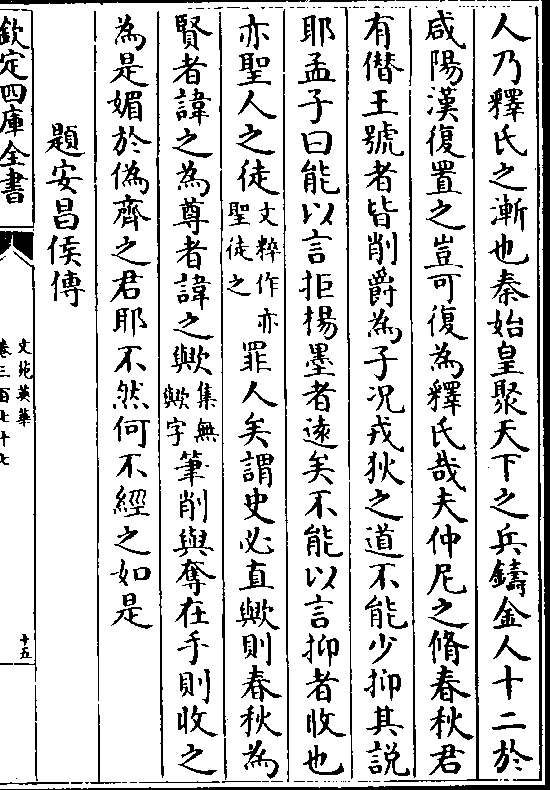 人乃釋氏之漸也秦始皇聚天下之兵鑄金人十二於
咸陽漢復置之豈可復為釋氏哉夫仲尼之脩春秋君
有僭王號者皆削爵為子况戎狄之道不能少抑其說
耶孟子曰能以言拒楊墨者遠矣不能以言抑者收也
亦聖人之徒文粹作亦聖徒之罪人矣謂史必直歟則春秋為
賢者諱之為尊者諱之歟集無歟字筆削與奪在手則收之
為是媚於偽齊之君耶不然何不經之如是
題安昌侯傳
欽定四庫全書
文苑英華
卷三百七十七
十五